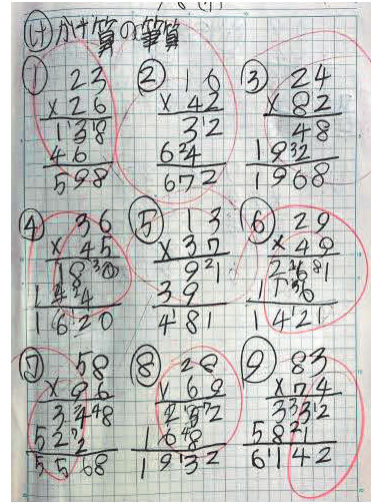 け かけ算の筆算
① 23
×26
138
46
598
② 16
×42
32
64
672
③ 24
×82
48
192
1968
④ 36
×45
180
144
1620
⑤ 13
×37
91
39
481
⑥ 29
×49
261
116
1421
⑦ 58
×96
348
522
5568
⑧ 28
×69
252
168
1932
⑨ 83
×74
332
581
6142